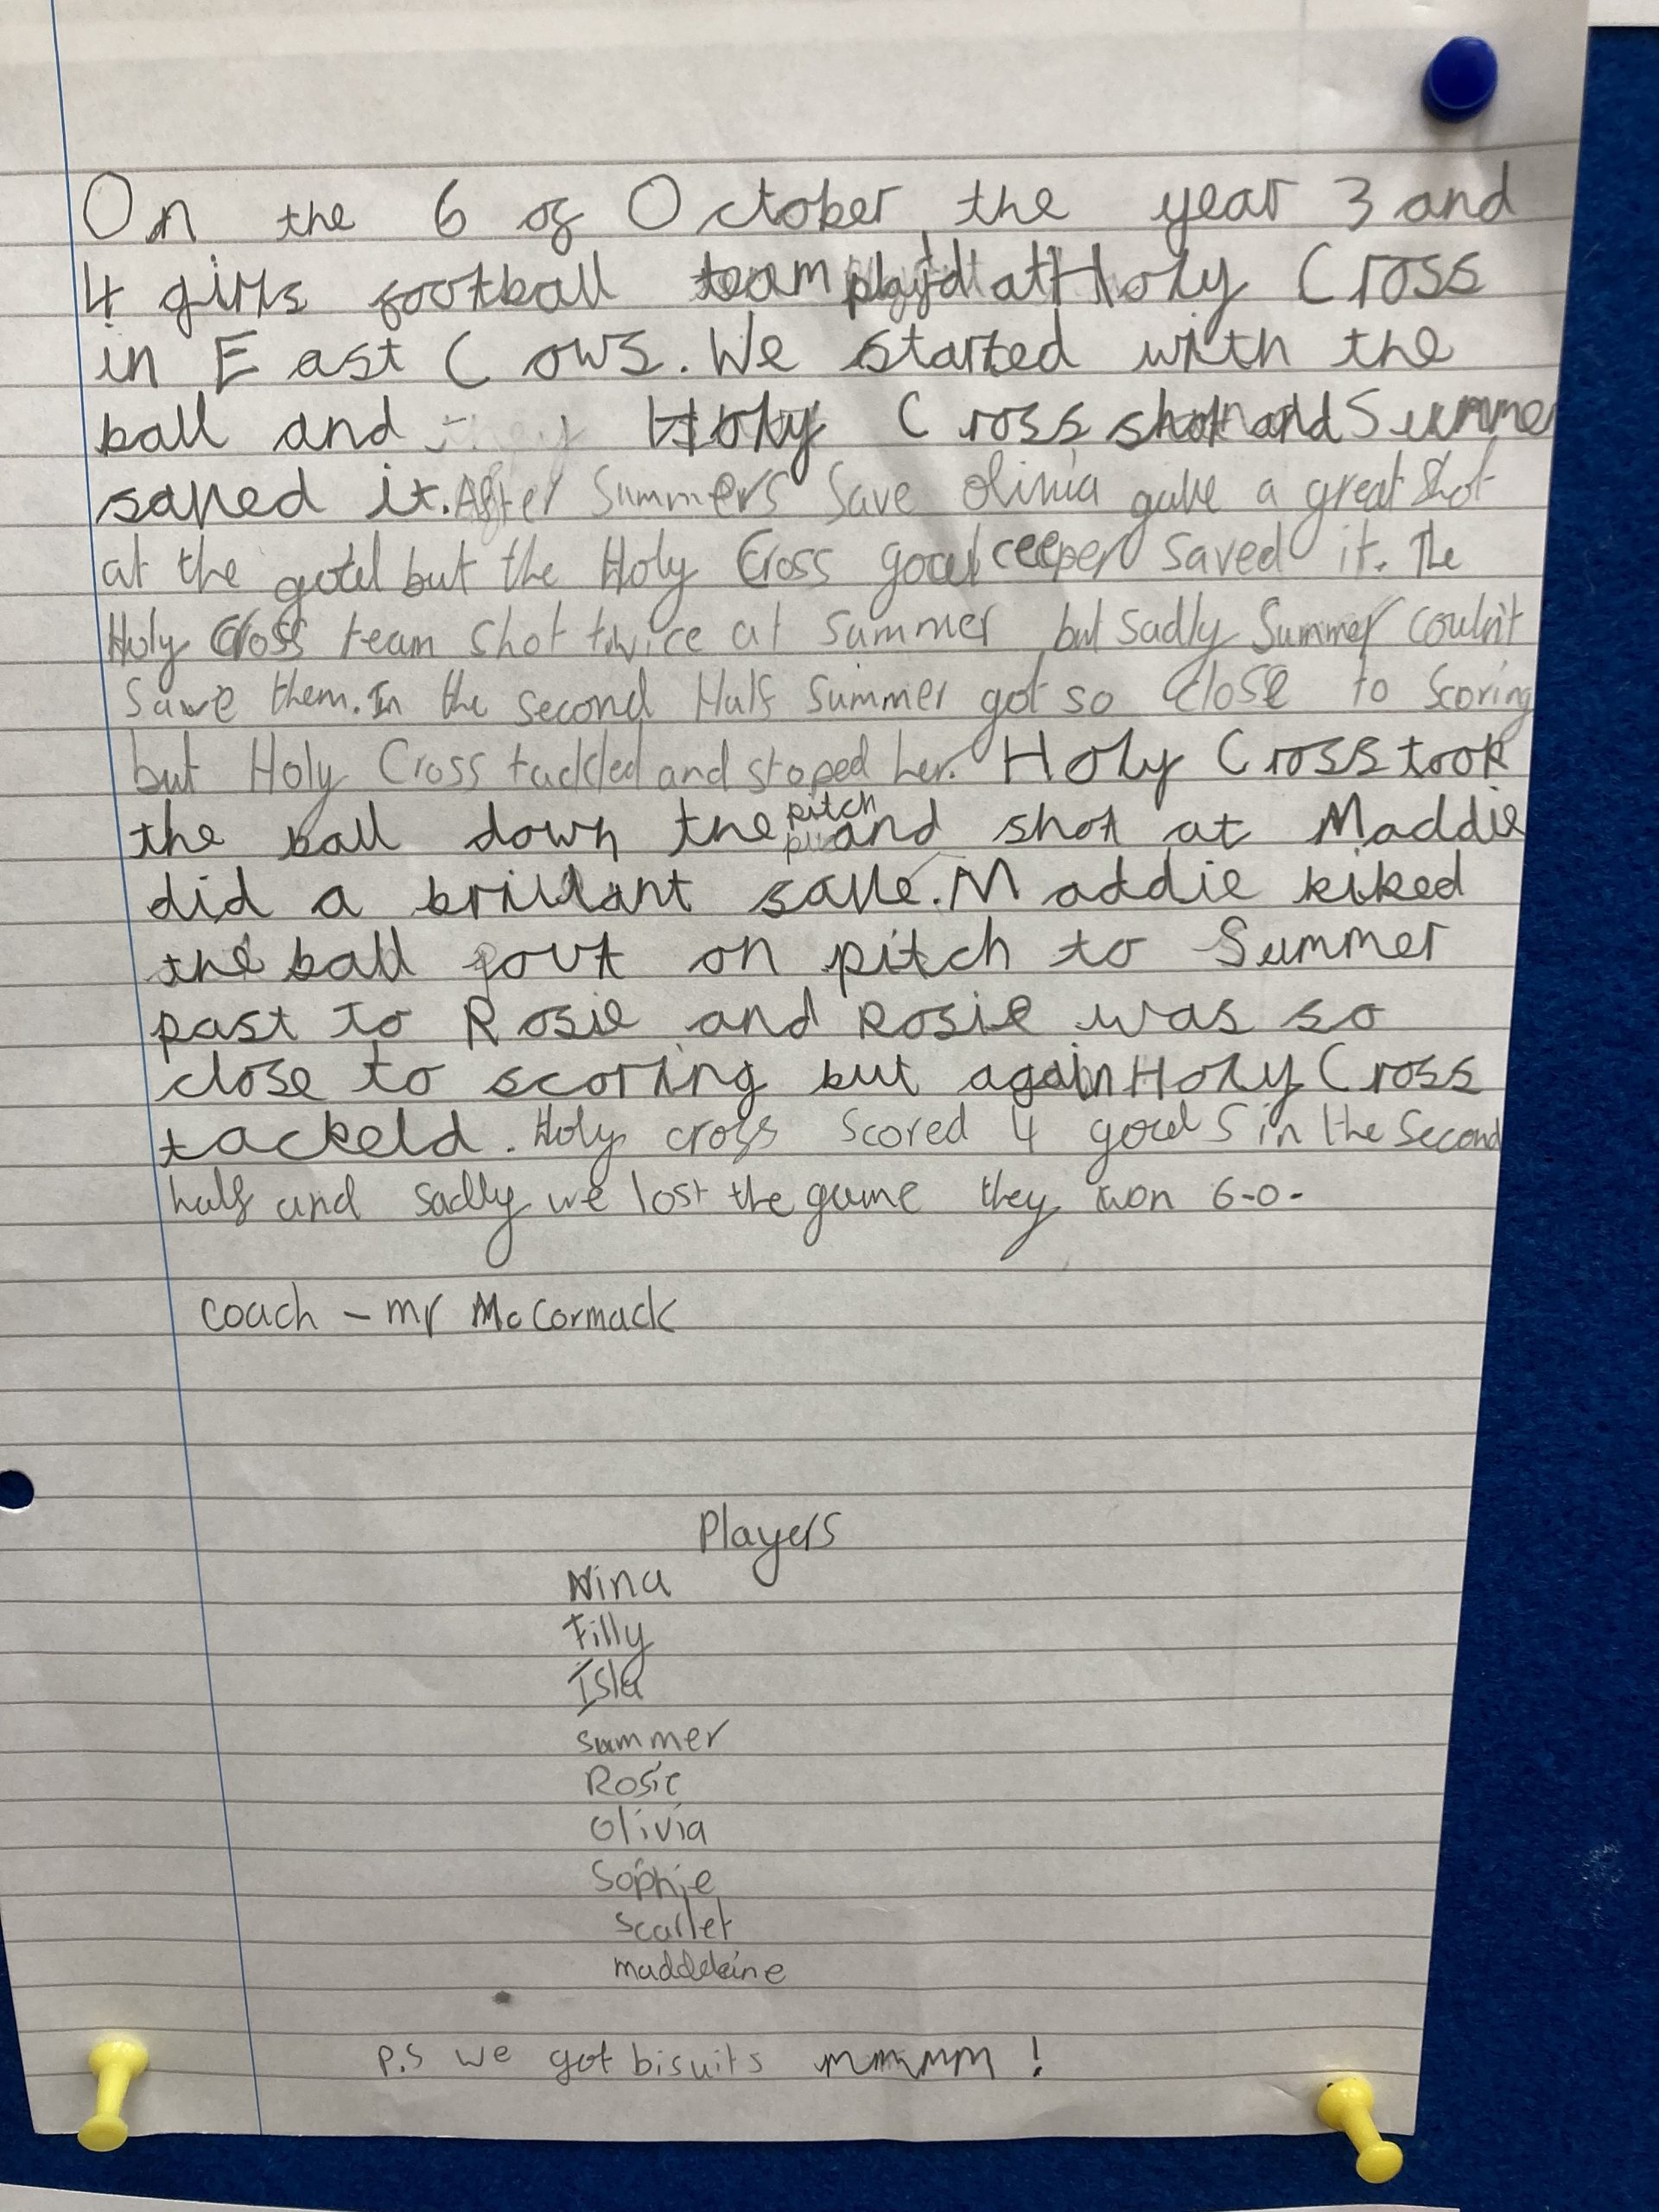 On the 6 of October, the year 3 and
4 girls football team playd at Holy Cross
in East Cows. We started with the
ball and Holy Cross shot and Summer
saved it. After Summers save Olivia gave a great shot
at the goal but the Holy Cross goal ceeper saved it. The
Holy Cross team shot twice at summer but sadly Summer couln't
save them. In the second Half Summer got so close to scoring
but Holy Cross tackled and stoped her. Holy Cross took
the ball down the pitch and shot at Maddie
did a brilliant save. Maddie kiked
the ball on pitch to Summer
past to Rosie and Rosie was so
close to scoring but again Holy Cross
tackeld. Holy cross scored 4 goals in the second
half and sadly we lost the game they won 6-0.
coach - mr McCormack
Players
Nina
Isla
summer
Rosie
Olivia
Sophie
scarlet
maddeleine
P.S we got bisuits mmmm !